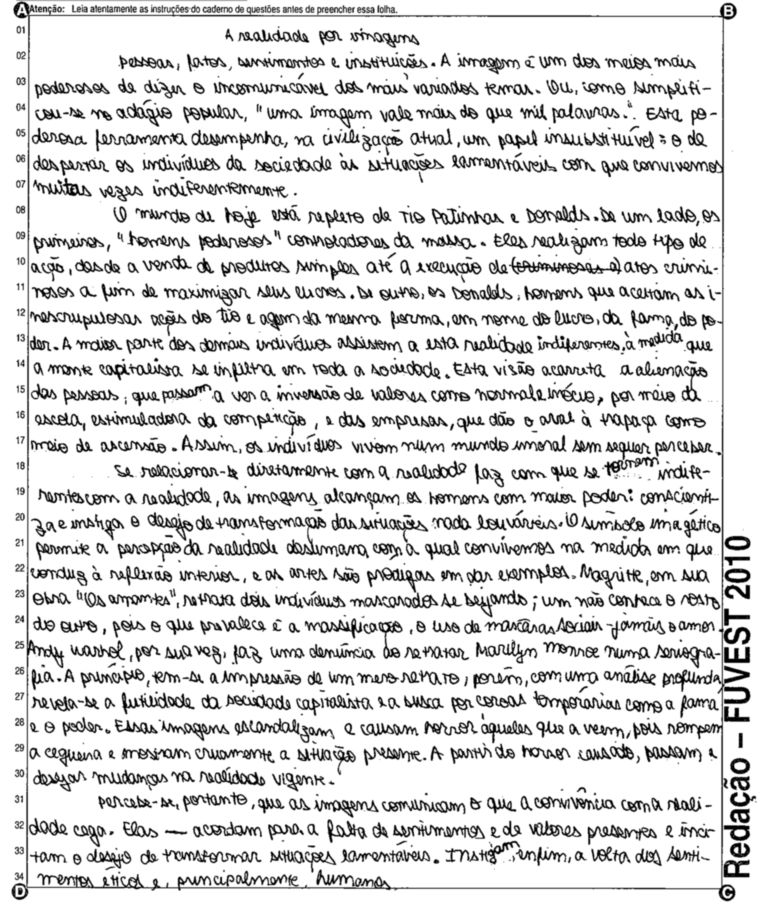 A Atenção: Leia atentamente as instruções do caderno de questões antes de preencher essa folha. B
01 A realidade por imagens
02 Pessoas, fatos, sentimentos e instituições. A imagem é um dos meios mais
03 poderosos de dizer o incomunicável dos mais variados temas. Ou, como simplifi-
04 cou-se no adágio popular, "uma imagem vale mais do que mil palavras.". Esta po-
05 derosa ferramenta desempenha, na civilização atual, um papel insubstituível: o de
06 despertar os indivíduos da sociedade às situações lamentáveis com que convivemos
07 muitas vezes indiferentemente.
08 O mundo de hoje está repleto de Tio Patinhas e Donalds. De um lado, os
09 primeiros, "homens poderosos" controladores da massa. Eles realizam todo tipo de
10 ação, desde a venda de produtos simples até a execução de (criminosos e) atos crimi-
11 nosos a fim de maximizar seus lucros. De outro, os Donalds, homens que aceitam as i-
12 nescrupulosas ações do tio e agem da mesma forma, em nome do lucro, da fama, do po-
13 der. A maior parte dos demais indivíduos assistem a esta realidade indiferentes, à medida que
14 a mente capitalista se infiltra em toda a sociedade. Esta visão acarreta a alienação
15 das pessoas, que passam a ver a inversão de valores como normal e inócuo, por meio da
16 escola, estimuladora da competição, e das empresas, que dão o aval à trapaça como
17 meio de ascensão. Assim, os indivíduos vivem num mundo imoral sem sequer perceber.
18 Se relacionar-se diretamente com a realidade faz com que se tornem indife-
19 rentes com a realidade, as imagens alcançam os homens com maior poder: conscienti-
20 za e instiga o desejo de transformação das situações nada louváveis. O símbolo imagético
21 permite a percepção da realidade desumana com a qual convivemos na medida em que
22 conduz à reflexão interior, e as artes são prodigas em dar exemplos. Magritte, em sua
23 obra "Os amantes", retrata dois indivíduos mascarados se beijando; um não conhece o rosto
24 do outro, pois o que prevalece é a massificação, o uso de máscaras sociais - jamais o amor.
25 Andy Warhol, por sua vez, faz uma denúncia ao retratar Marilyn Monroe numa serigra-
26 fia. A princípio, tem-se a impressão de um mero retrato; porém, com uma análise profunda,
27 revela-se a futilidade da sociedade capitalista e a busca por coroas temporárias como a fama
28 e o poder. Essas imagens escandalizam e causam horror àqueles que a veem, pois rompem
29 a cegueira e mostram cruamente a situação presente. A partir do horror causado, passam a
30 desejar mudanças na realidade vigente.
31 Percebe-se, portanto, que as imagens comunicam o que a convivência com a reali-
32 dade cega. Elas — acordam para a falta de sentimentos e de valores presentes e inci-
33 tam o desejo de transformar situações lamentáveis. Instigam, enfim, a volta dos senti-
34 mentos éticos e, principalmente, humanos
D C
Redação – FUVEST 2010